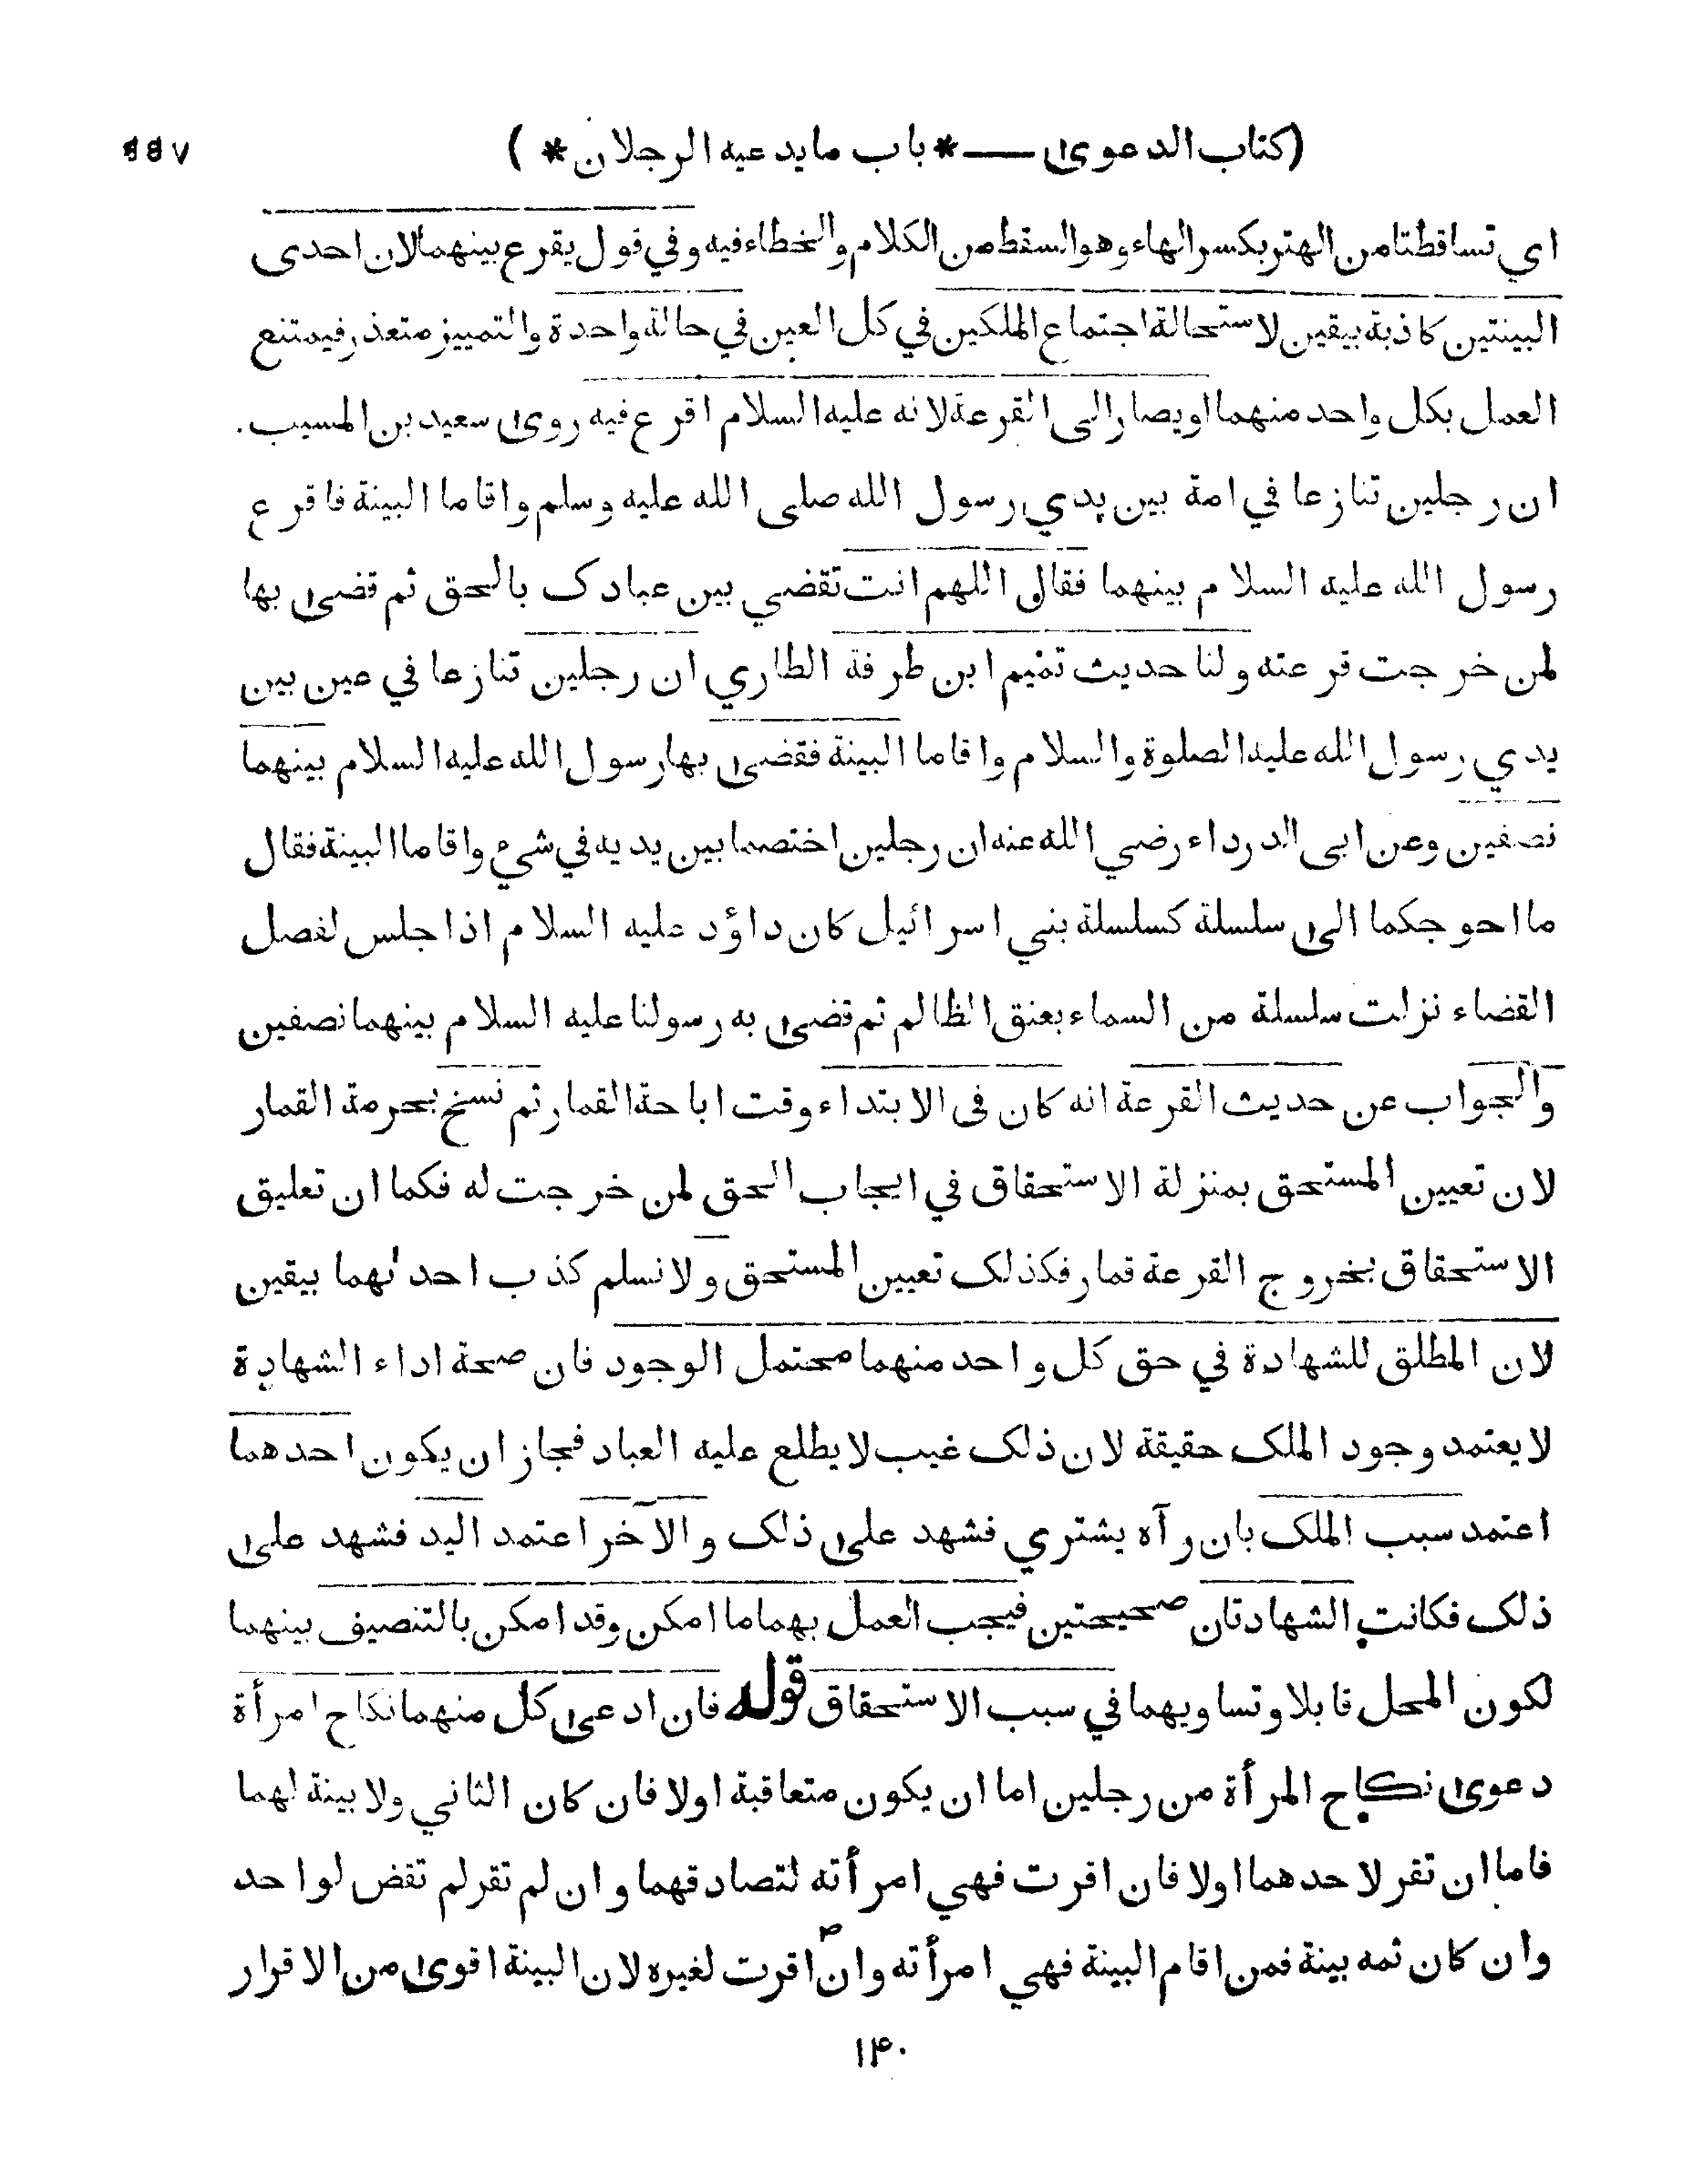 (كتاب الدعوىٰ — * باب ما يدعيه الرجلان * )
اي تساقطتا من الهتر بكسر الهاء وهو السقط من الكلام والخطاء فيه وفي قول يقرع بينهما لان احدى
البينتين كاذبة بيقين لاستحالة اجتماع الملكين في كل العين في حالة واحدة والتمييز متعذر فيمتنع
العمل بكل واحد منهما او يصار الى القرعة لانه عليه السلام اقرع فيه روىٰ سعيد بن المسيب
ان رجلين تنازعا في امة بين يدي رسول الله صلى الله عليه وسلم واقاما البينة فاقرع
رسول الله عليه السلام بينهما فقال اللهم انت تقضي بين عبادك بالحق ثم قضىٰ بها
لمن خرجت قرعته ولنا حديث تميم ابن طرفة الطاري ان رجلين تنازعا في عين بين
يدي رسول الله عليه الصلوة والسلام واقاما البينة فقضىٰ بها رسول الله عليه السلام بينهما
نصفين وعن ابى الدرداء رضي الله عنه ان رجلين اختصما بين يديه في شيء واقاما البينة فقال
ما احوجكما الىٰ سلسلة كسلسلة بني اسرائيل كان داؤد عليه السلام اذا جلس لفصل
القضاء نزلت سلسلة من السماء بعنق الظالم ثم قضىٰ به رسولنا عليه السلام بينهما نصفين
والجواب عن حديث القرعة انه كان فى الابتداء وقت اباحة القمار ثم نسخ بحرمة القمار
لان تعيين المستحق بمنزلة الاستحقاق في ايجاب الحق لمن خرجت له فكما ان تعليق
الاستحقاق بخروج القرعة قمار فكذلك تعيين المستحق ولا نسلم كذب احدٰهما بيقين
لان المطلق للشهادة في حق كل واحد منهما محتمل الوجود فان صحة اداء الشهادة
لا يعتمد وجود الملك حقيقة لان ذلك غيب لا يطلع عليه العباد فجاز ان يكون احدهما
اعتمد سبب الملك بان رآه يشتري فشهد علىٰ ذلك والآخر اعتمد اليد فشهد علىٰ
ذلك فكانت الشهادتان صحيحتين فيجب العمل بهما ما امكن وقد امكن بالتنصيف بينهما
لكون المحل قابلا وتساويهما في سبب الاستحقاق قوله فان ادعىٰ كل منهما نكاح امرأة
دعوىٰ نكاح المرأة من رجلين اما ان يكون متعاقبة اولا فان كان الثاني ولا بينة لهما
فاما ان تقر لاحدهما اولا فان اقرت فهي امرأته لتصادقهما وان لم تقر لم تقض لواحد
وان كان ثمه بينة فمن اقام البينة فهي امرأته وان اقرت لغيره لان البينة اقوىٰ من الاقرار
۱۴۰